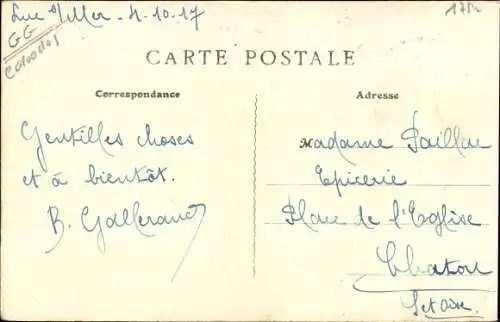 Luc s/Mer - 4-10-17
GG
Calvados
CARTE POSTALE
Correspondance
Adresse
Gentilles choses
et à bientôt.
Madame Paillac
Epicerie
Place de l'Eglise
Chatou
Set Oise.